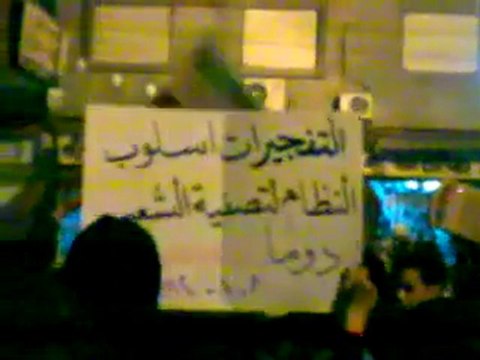 التفجيرات اسلوب
النظام لتصفية الشعب
دوما